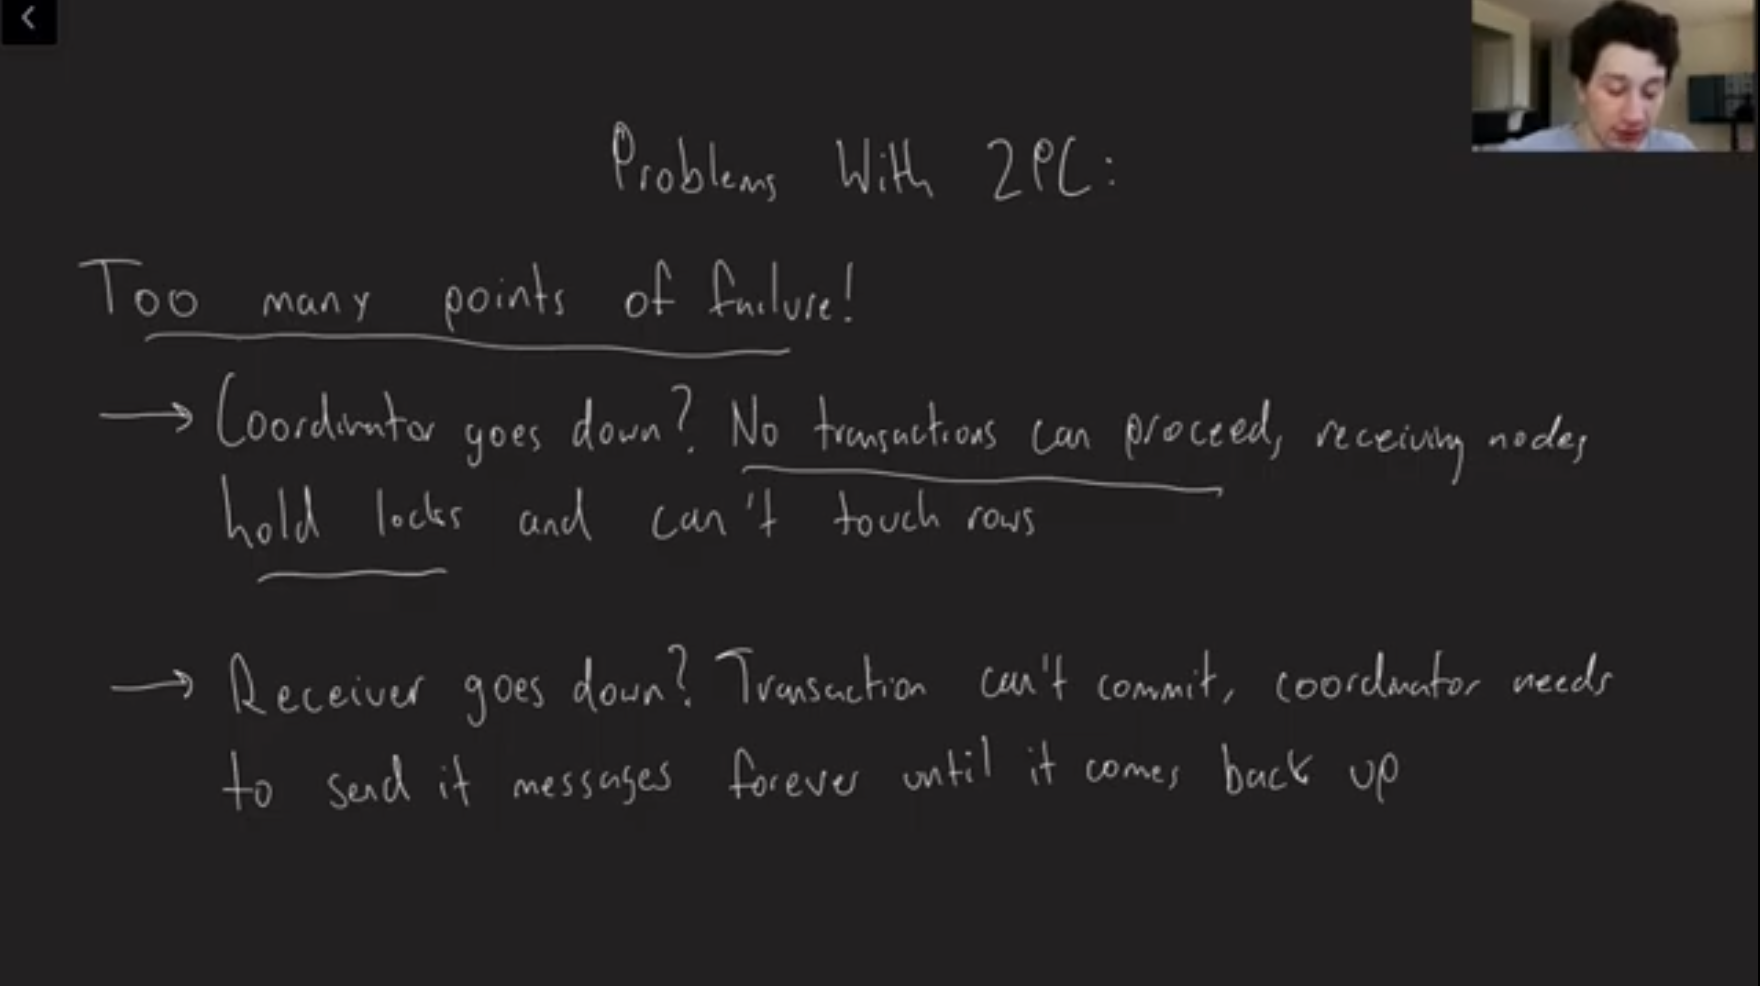 Problems With 2PC:
Too many points of failure!
→ Coordinator goes down? No transactions can proceed, receiving nodes
hold locks and can't touch rows
→ Receiver goes down? Transaction can't commit, coordinator needs
to send it messages forever until it comes back up